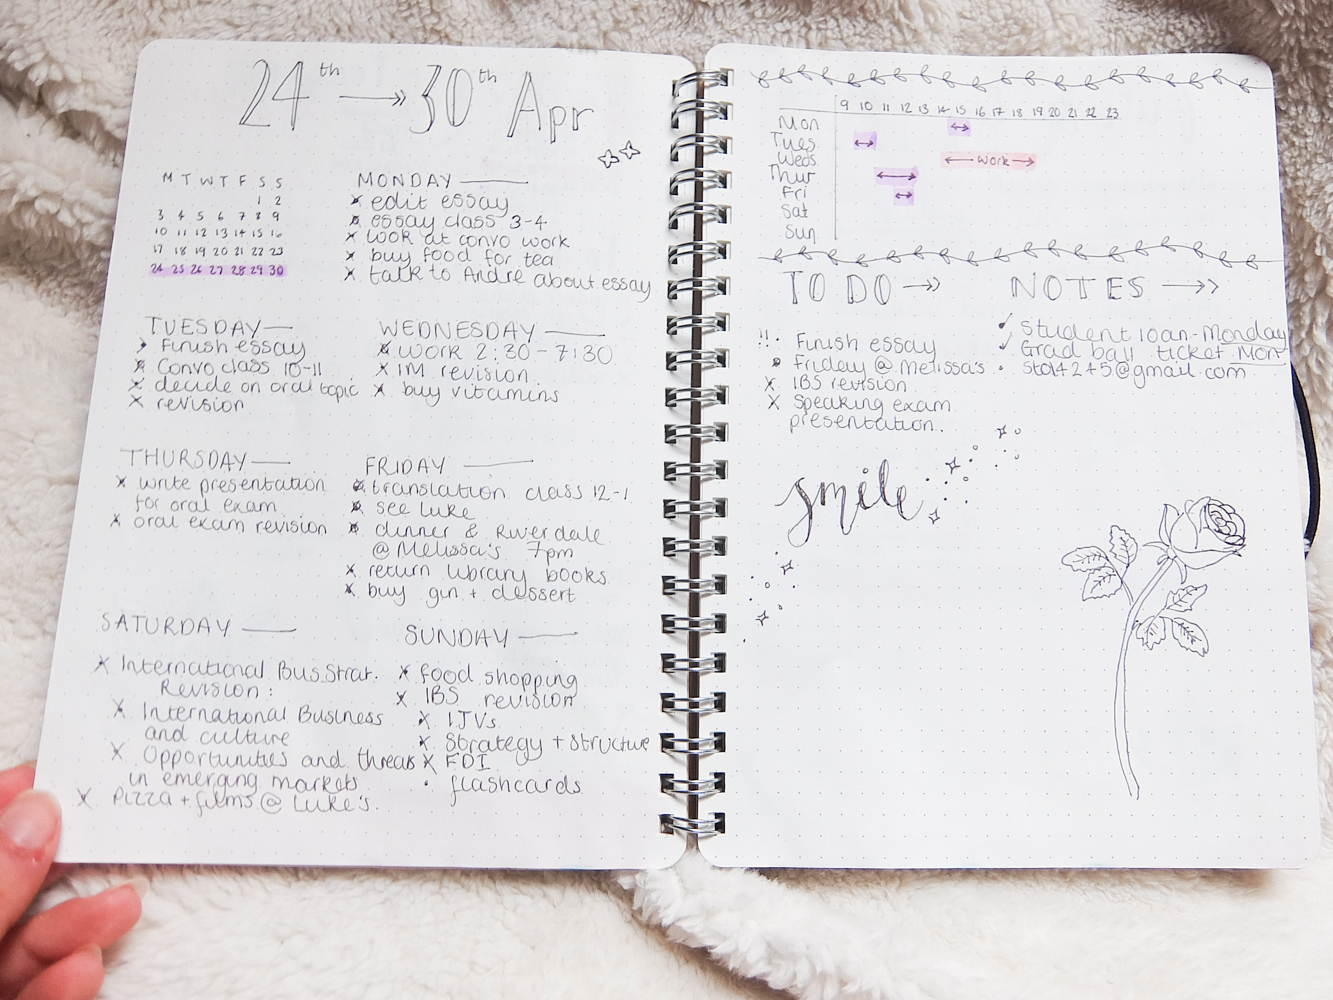 24th → 30th Apr
M T W T F S S
1 2
3 4 5 6 7 8 9
10 11 12 13 14 15 16
17 18 19 20 21 22 23
24 25 26 27 28 29 30
MONDAY
x edit essay
x essay class 3-4
x look at convo work
x buy food for tea
x talk to Andre about essay
TUESDAY
> Finish essay
x Convo class 10-11
x decide on oral topic
x revision
WEDNESDAY
x work 2:30-7:30
x IM revision
x buy vitamins
THURSDAY
x write presentation
for oral exam
x oral exam revision
FRIDAY
x translation class 12-1
x see Luke
x dinner & Riverdale
@ Melissa's 7pm
x return library books
x buy gin + dessert
SATURDAY
x International Bus Strat.
Revision:
x International Business
and culture
x Opportunities and threats
in emerging markets
x Pizza + films @ Luke's
SUNDAY
x food shopping
x IBS revision
x IJVs
x Strategy + structure
x FDI
· flashcards
9 10 11 12 13 14 15 16 17 18 19 20 21 22 23
Mon
Tues
Weds ← work →
Thur
Fri
Sat
Sun
TO DO →
!! · Finish essay
• Friday @ Melissa's
x IBS revision
x Speaking exam
presentation.
NOTES →
✓ Student loan - Monday
✓ Grad ball ticket Mon
· stol4245@gmail.com
smile